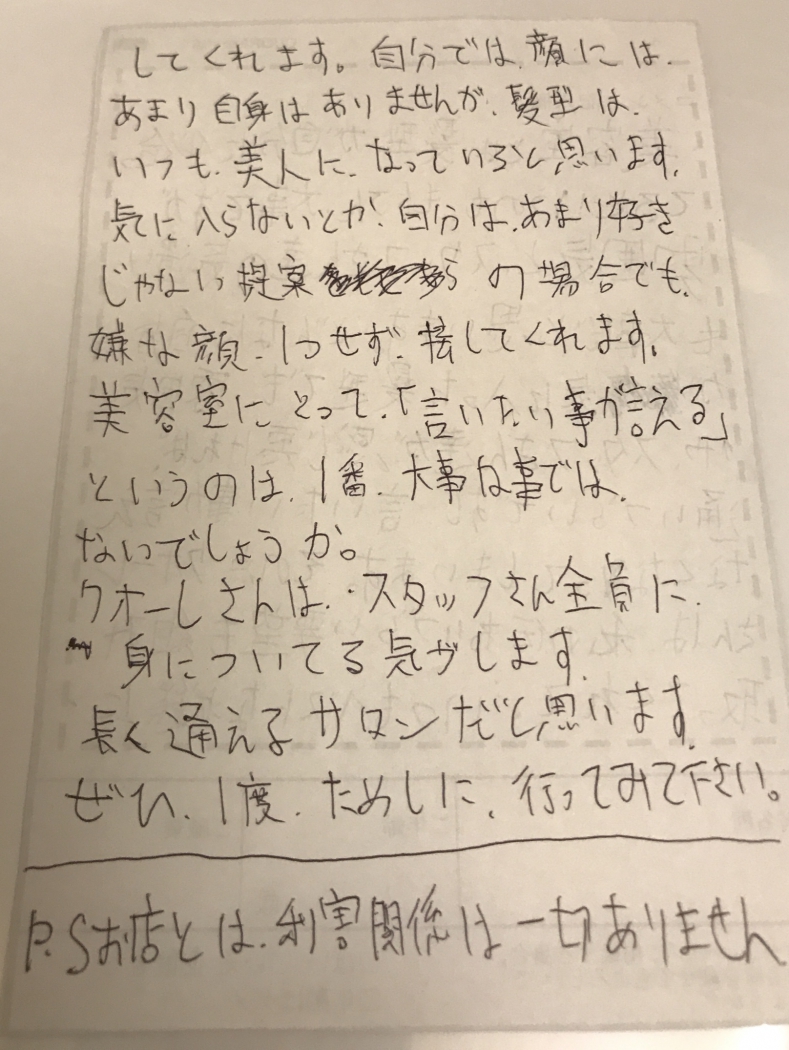 してくれます。自分では、顔には、
あまり自身はありませんが、髪型は、
いつも、美人に、なっていると思います。
気に入らないとか、自分は、あまり好き
じゃない提案の場合でも、
嫌な顔、1つせず、接してくれます。
美容室にとって、「言いたい事が言える」
というのは、1番、大事な事では、
ないでしょうか。
クオーレさんは、スタッフさん全員に、
身についてる気がします。
長く通えるサロンだと思います。
ぜひ、1度、ためしに、行ってみて下さい。
P.Sお店とは、利害関係は一切ありません